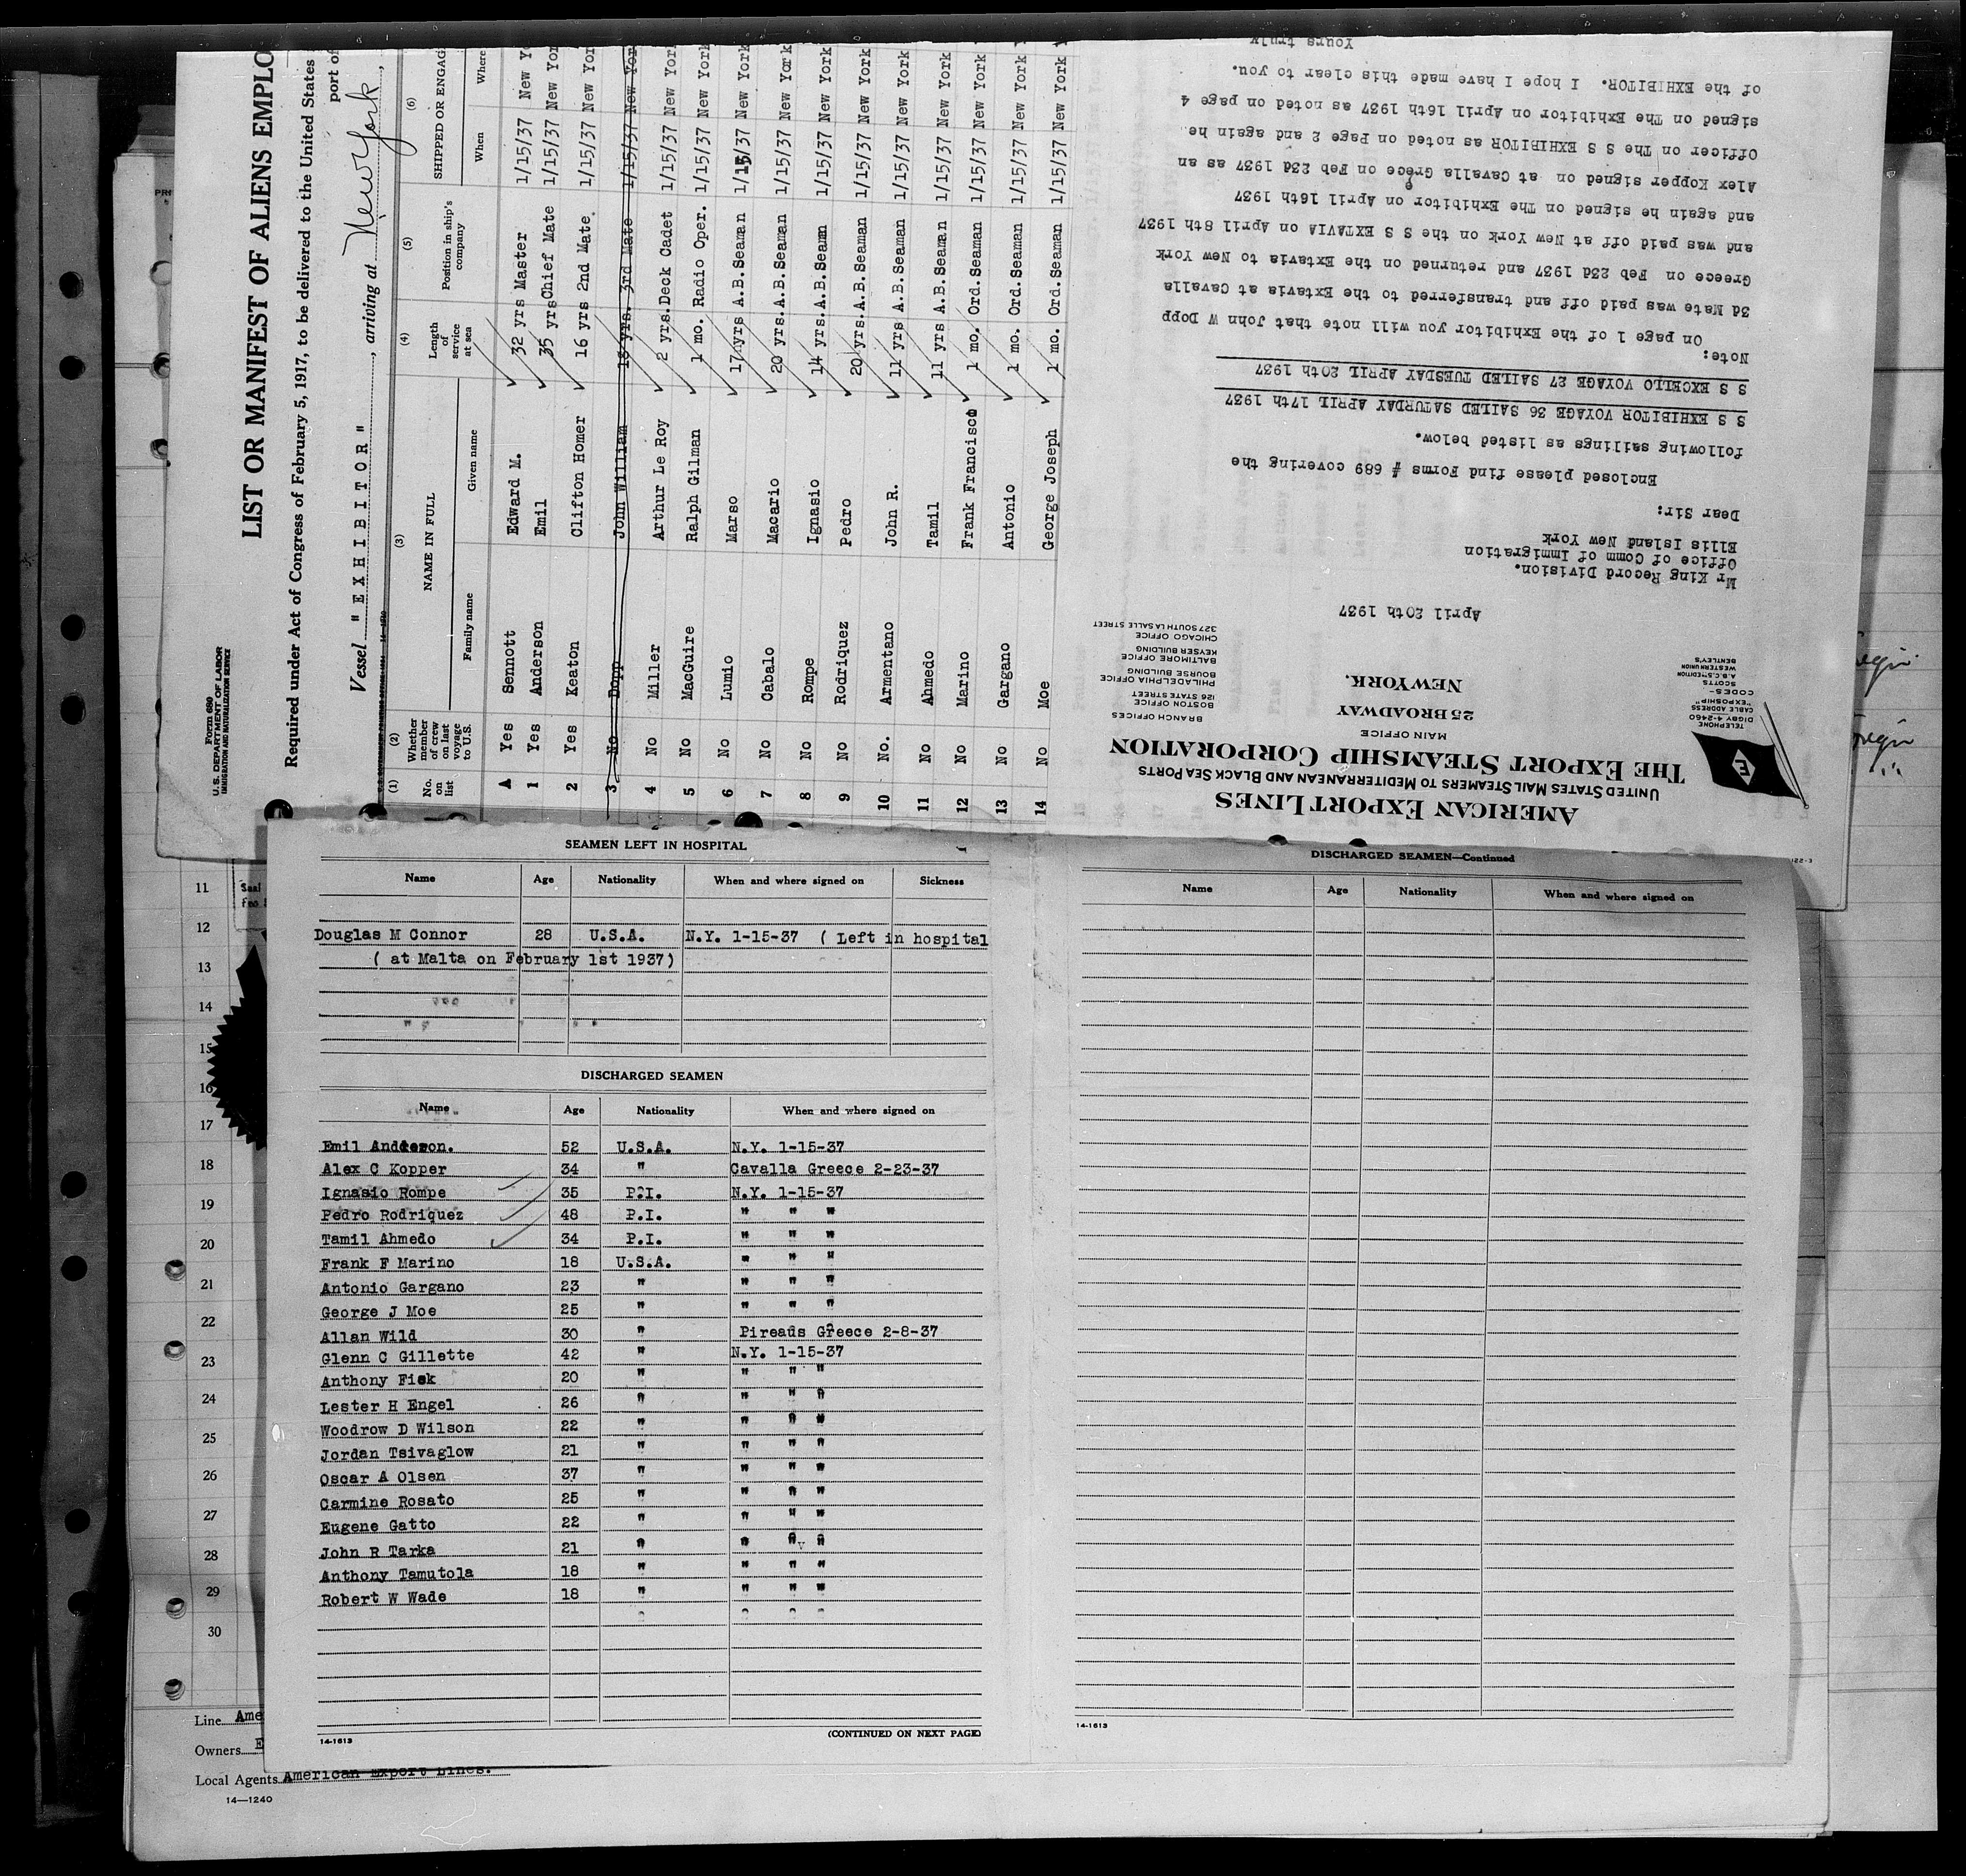 Form 689
U. S. DEPARTMENT OF LABOR
IMMIGRATION AND NATURALIZATION SERVICE
LIST OR MANIFEST OF ALIENS EMPLO
Required under Act of Congress of February 5, 1917, to be delivered to the United States
port of
Vessel " E X H I B I T O R " , arriving at New York ,
(1) (2) (3) (4) (5) (6)
No. on list Whether member of crew on last voyage to U.S. NAME IN FULL Length of service at sea Position in ship's company SHIPPED OR ENGAG
Family name Given name When Where
A Yes Sennott Edward M. 32 yrs Master 1/15/37 New Yo
1 Yes Anderson Emil 35 yrs Chief Mate 1/15/37 New Yor
2 Yes Keaton Clifton Homer 16 yrs 2nd Mate. 1/15/37 New Yor
3 No Dopp John William yrs. 3rd Mate 1/15/37 New Yor
4 No Miller Arthur Le Roy 2 yrs. Deck Cadet 1/15/37 New York
5 No MacGuire Ralph Gilman 1 mo. Radio Oper. 1/15/37 New York
6 No Lumio Marso 17 yrs A.B.Seaman 1/15/37 New York
7 No Cabalo Macario 20 yrs. A.B.Seaman 1/15/37 New York
8 No Rompe Ignasio 14 yrs. A.B.Seamn 1/15/37 New York
9 No Rodriquez Pedro 20 yrs. A.B.Seaman 1/15/37 New York
10 No. Armentano John R. 11 yrs A.B.Seaman 1/15/37 New York
11 No Ahmedo Tamil 11 yrs A.B.Seaman 1/15/37 New York
12 No Marino Frank Francisco 1 mo. Ord.Seaman 1/15/37 New York
13 No Gargano Antonio 1 mo. Ord.Seaman 1/15/37 New York
14 No Moe George Joseph 1 mo. Ord.Seaman 1/15/37 New York
AMERICAN EXPORT LINES
UNITED STATES MAIL STEAMERS TO MEDITERRANEAN AND BLACK SEA PORTS
THE EXPORT STEAMSHIP CORPORATION
MAIN OFFICE
25 BROADWAY
NEW YORK.
TELEPHONE
DIGBY 4-2460
CABLE ADDRESS
"EXPOSHIP"
-CODES-
SCOTTS
A.B.C. 5TH EDITION
WESTERN UNION
BENTLEY'S
E
BRANCH OFFICES
BOSTON OFFICE
126 STATE STREET
PHILADELPHIA OFFICE
BOURSE BUILDING
BALTIMORE OFFICE
KEYSER BUILDING
CHICAGO OFFICE
327 SOUTH LA SALLE STREET
April 20th 1937
Mr King Record Division.
Office of Comm of Immigration
Ellis Island New York
Dear Sir:
Enclosed please find Forms # 689 covering the
following sailings as listed below.
S S EXHIBITOR VOYAGE 36 SAILED SATURDAY APRIL 17th 1937
S S EXCELLO VOYAGE 27 SAILED TUESDAY APRIL 20th 1937
Note:
On page 1 of the Exhibitor you will note that John W Dopp
3d Mate was paid off and transferred to the Extavia at Cavalla
Greece on Feb 23d 1937 and returned on the Extavia to New York
and was paid off at New York on the S S EXTAVIA on April 8th 1937
and again he signed on The Exhibitor on April 16th 1937
Alex Kopper signed on at Cavalla Grece on Feb 23d 1937 as an
Officer on The S S EXHIBITOR as noted on Page 2 and again he
signed on The Exhibitor on April 16th 1937 as noted on page 4
of the EXHIBITOR. I hope I have made this clear to you.
Yours truly
SEAMEN LEFT IN HOSPITAL
Name Age Nationality When and where signed on Sickness
Douglas M Connor 28 U.S.A. N.Y. 1-15-37 ( Left in hospital
( at Malta on February 1st 1937)
DISCHARGED SEAMEN
Name Age Nationality When and where signed on
Emil Anderson. 52 U.S.A. N.Y. 1-15-37
Alex C Kopper 34 " Cavalla Greece 2-23-37
Ignasio Rompe 35 P.I. N.Y. 1-15-37
Pedro Rodriquez 48 P.I. " " "
Tamil Ahmedo 34 P.I. " " "
Frank F Marino 18 U.S.A. " " "
Antonio Gargano 23 " " " "
George J Moe 25 " " " "
Allan Wild 30 " Pireaus Greece 2-8-37
Glenn C Gillette 42 " N.Y. 1-15-37
Anthony Fisk 20 " " " "
Lester H Engel 26 " " " "
Woodrow D Wilson 22 " " " "
Jordan Tsivaglow 21 " " " "
Oscar A Olsen 37 " " " "
Carmine Rosato 25 " " " "
Eugene Gatto 22 " " " "
John R Tarka 21 " " " "
Anthony Tamutola 18 " " " "
Robert W Wade 18 " " " "
(CONTINUED ON NEXT PAGE)
14-1613
DISCHARGED SEAMEN—Continued
Name Age Nationality When and where signed on
14-1613
11
12
13
14
15
16
17
18
19
20
21
22
23
24
25
26
27
28
29
30
Line Ame
Owners E
Local Agents American Export Lines.
14—1240